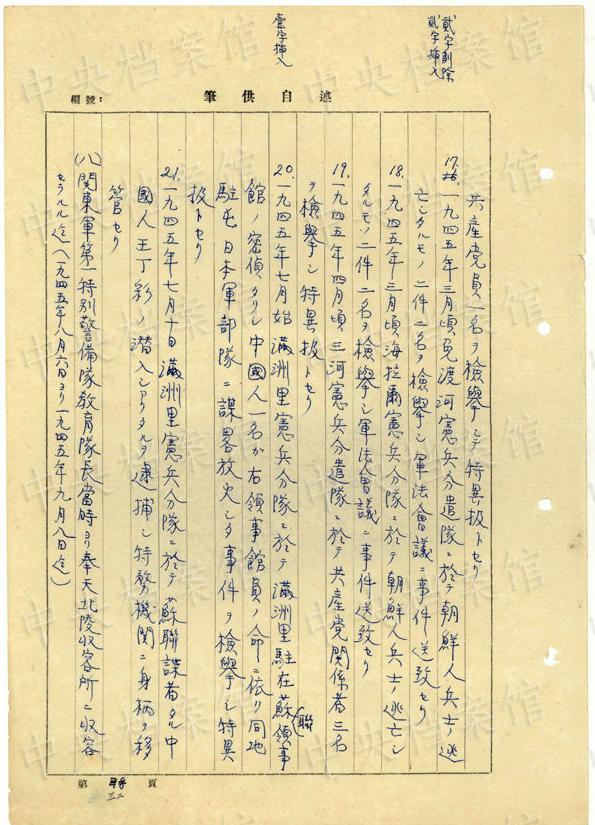 貳字削除
貳字挿入
壹字挿入
述自供筆
編號:
共産党員一名ヲ檢擧シテ特異扱トセリ
17.一九四五年三月頃免渡河憲兵分遣隊ニ於テ朝鮮人兵士ノ逃
亡シタルモノ二件二名ヲ檢擧シ軍法會議ニ事件送致セリ
18.一九四五年三月頃海拉爾憲兵分隊ニ於テ朝鮮人兵士ノ逃亡シ
タルモノ二件二名ヲ檢擧シ軍法會議ニ事件送致セリ
19.一九四五年四月頃三河憲兵分遣隊ニ於テ共産党関係者三名
ヲ檢擧シ特異扱トセリ
20.一九四五年七月始滿洲里憲兵分隊ニ於テ滿洲里駐在蘇聯領事
館ノ密偵タリシ中國人一名か右領事館員ノ命ニ依リ同地
駐屯日本軍部隊ニ謀畧放火シタ事件ヲ檢擧シ特異
扱トセリ
21.一九四五年七月十日滿洲里憲兵分隊ニ於テ蘇聯諜者タル中
國人王丁彩ノ潜入シアリタルヲ逮捕シ特務機関ニ身柄ヲ移
管セリ
(八)関東軍第一特別警備隊教育隊長當時ヨリ奉天北陵収容所ニ収容
セラルル迄(一九四五年八月六日ヨリ一九四五年九月八日迄)
第
三二
頁
中央档案馆